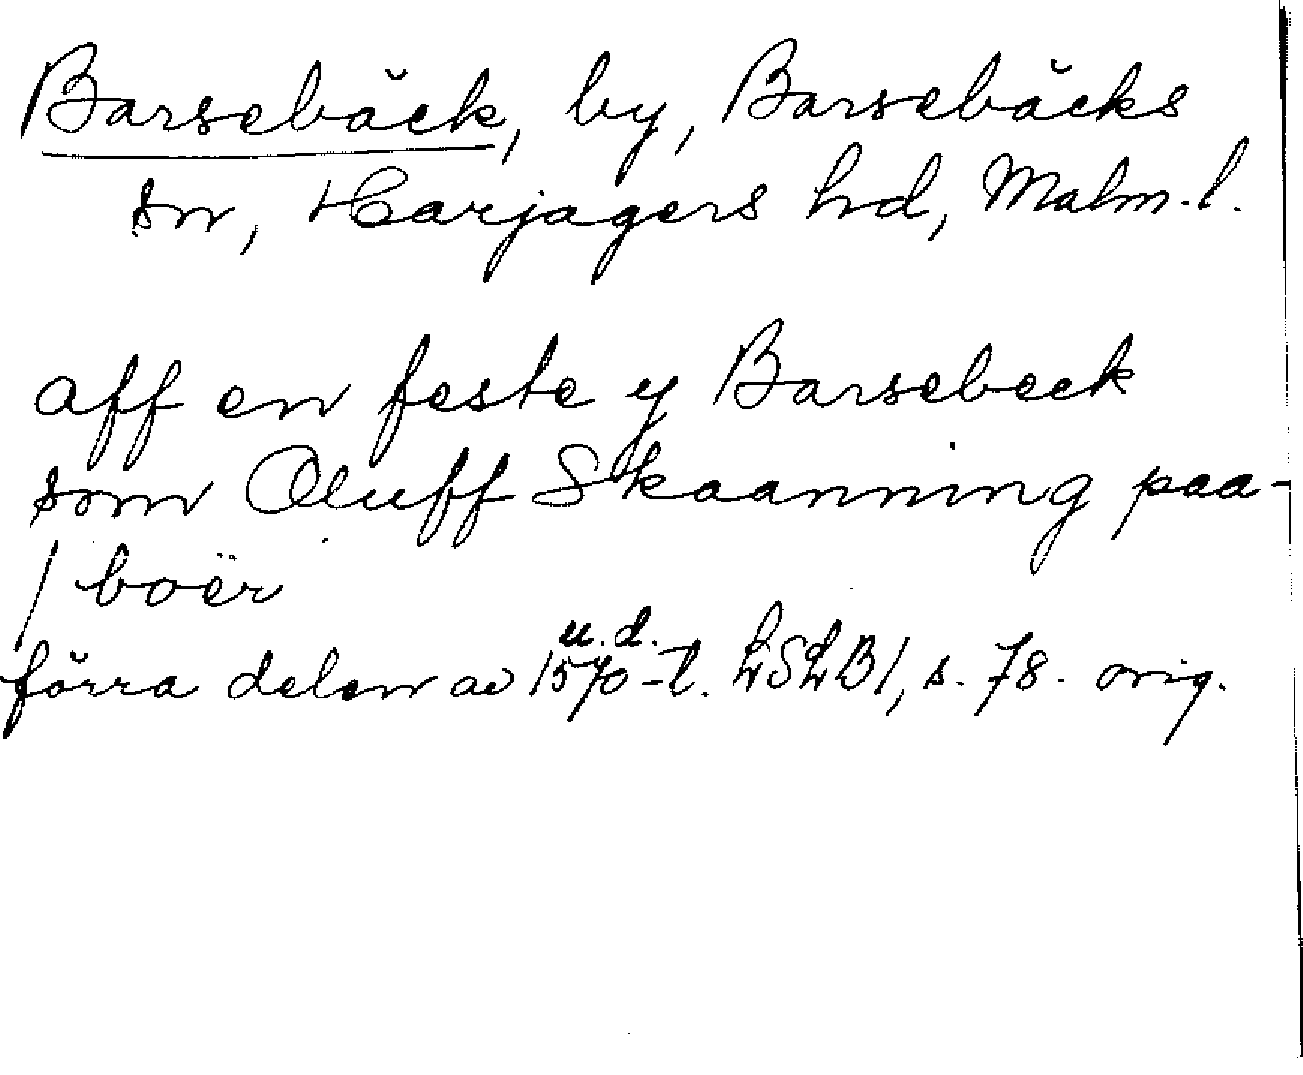 Barsebäck, by, Barsebäcks
sn, Harjagers hd, Malm.l.
aff en feste y Barsebeck
som Oluff Skaanning paa-
/ boër
u.d.
förra delen av 1570-t. LSLB1, s. 78. orig.